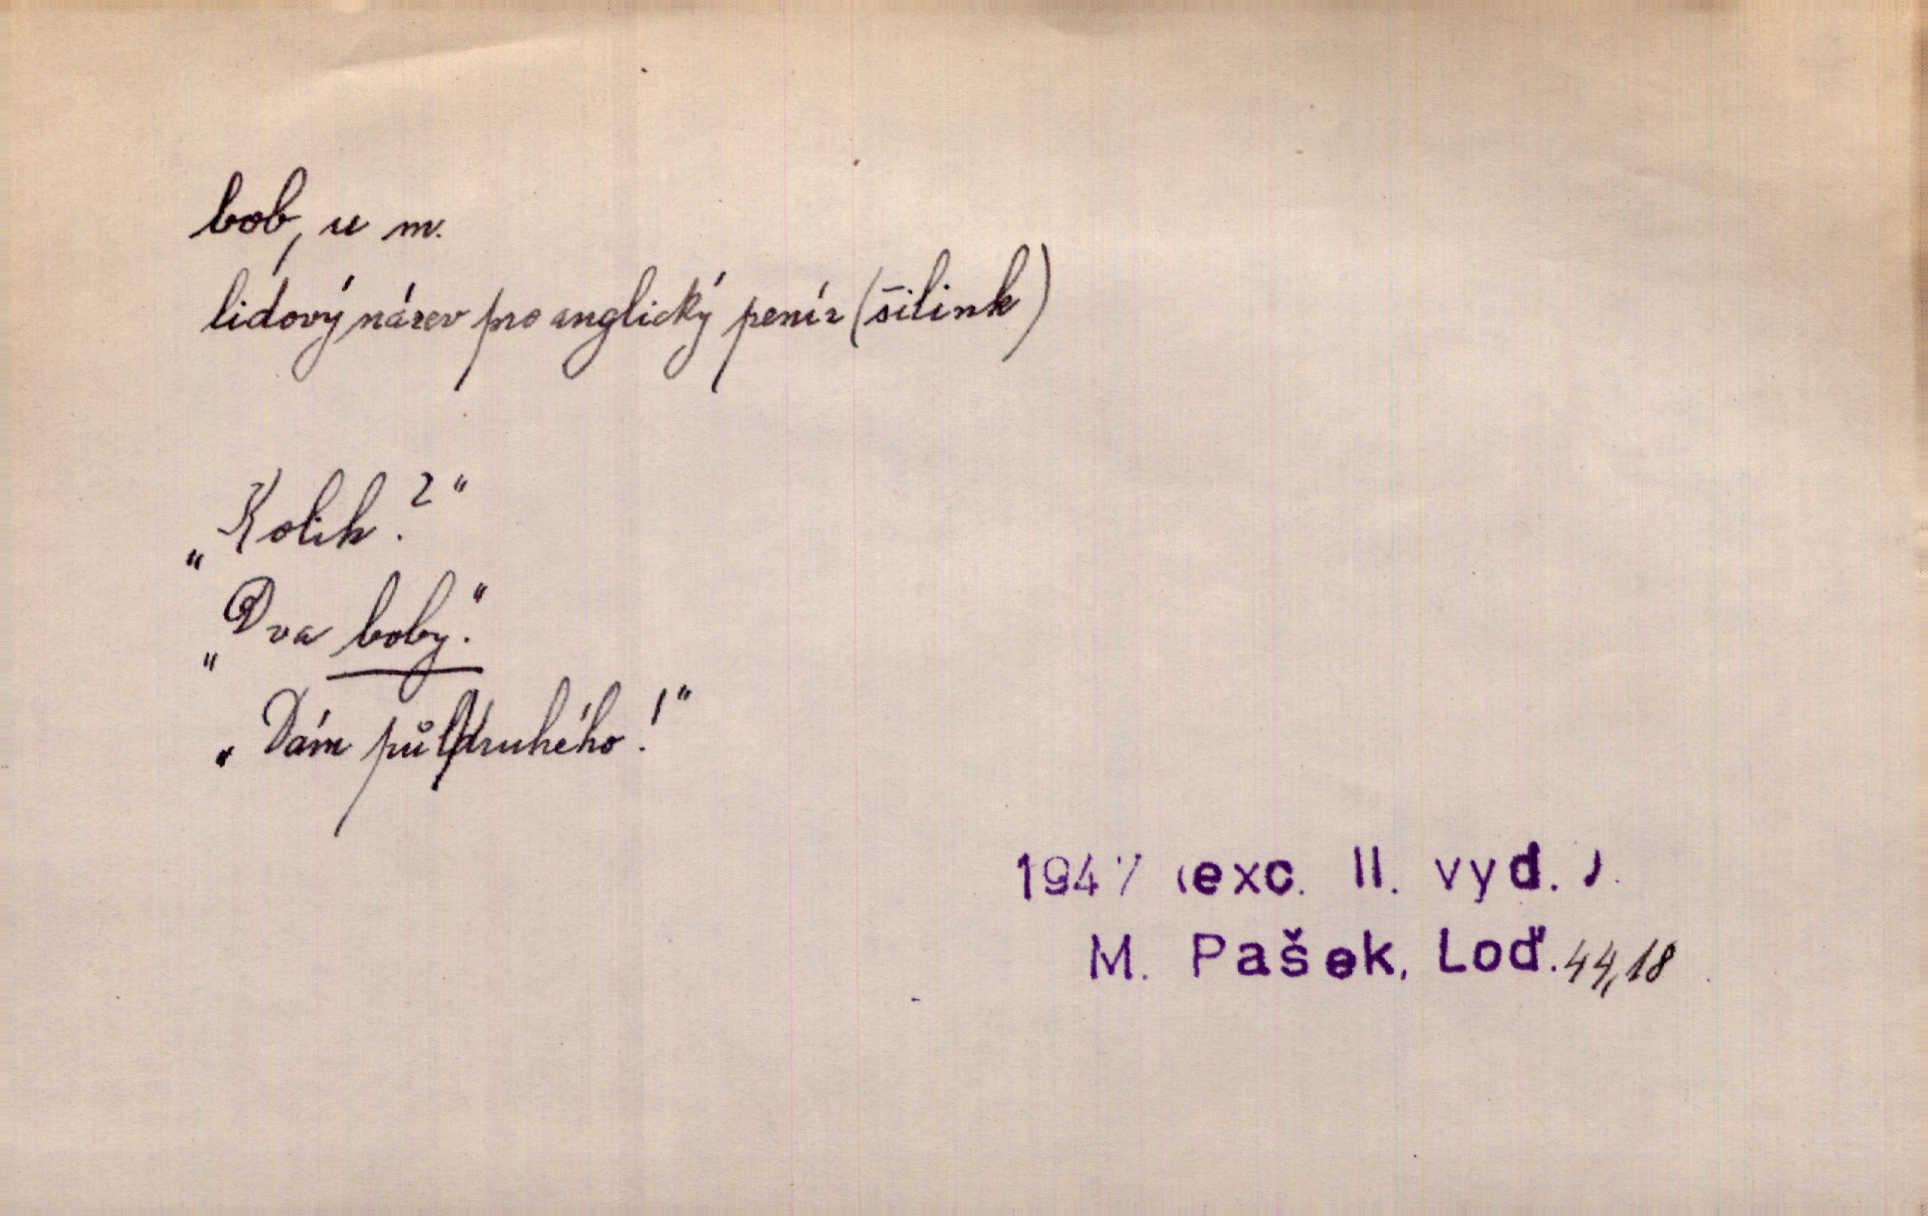 bob, u m.
lidový název pro anglický peníz (šilink)
„Kolik?“
„Dva boby.“
„Dám půldruhého!“
1947 (exc. II. vyd.).
M. Pašek, Loď. 44,18